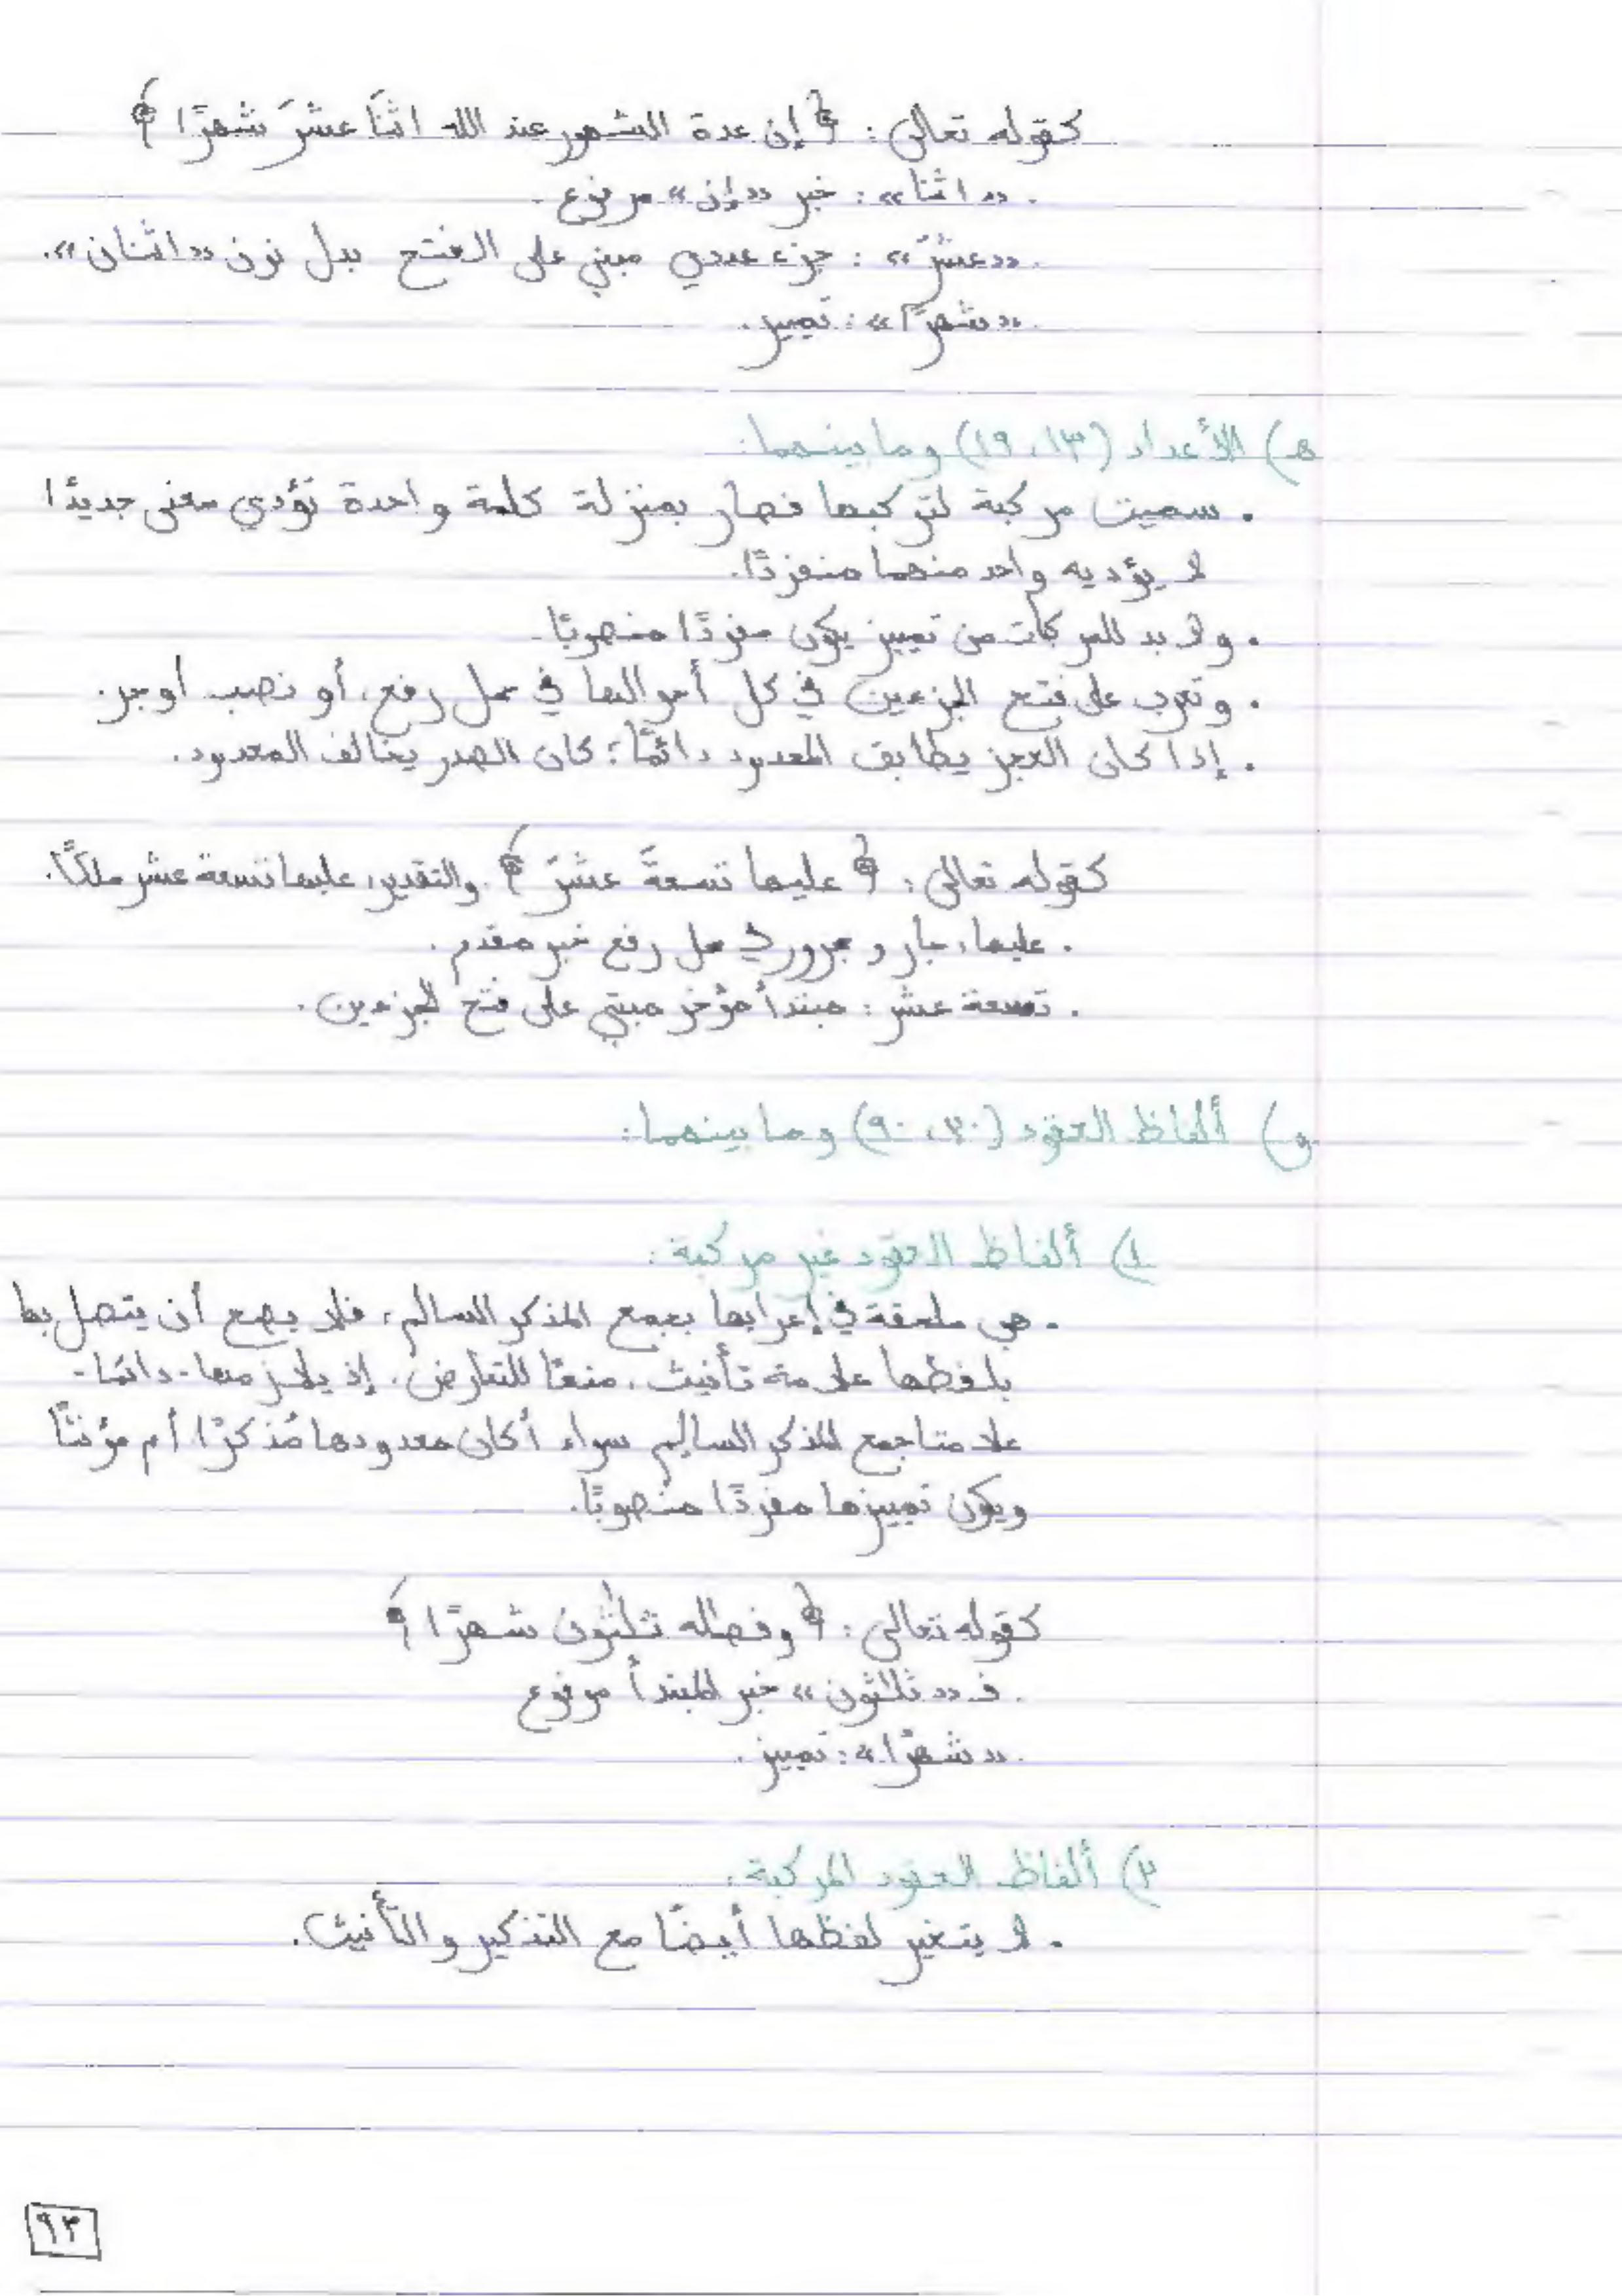 كقوله تعالى: ﴿إن عدة الشهور عند الله اثنَا عشَرَ شهرًا﴾
. «اثنا»: خبر «إن» مرفوع.
. «عشَرَ»: جزء عددي مبني على الفتح بدل نون «اثنان».
. «شهرًا»: تمييز.
هـ) الأعداد (١٣، ١٩) وما بينهما:
. سميت مركبة لتركبها فصار بمنزلة كلمة واحدة تؤدي معنى جديدًا
لا يؤديه واحد منهما منفردًا.
. ولا بد للمركبات من تمييز يكون مفردًا منصوبًا.
. وتعرب على فتح الجزءين في كل أحوالها في محل رفع، أو نصب أو جر.
. إذا كان العجز يطابق المعدود دائمًا؛ كان الصدر يخالف المعدود.
كقوله تعالى: ﴿عليها تسعةَ عشَرَ﴾. والتقدير: عليها تسعة عشر ملكًا.
. عليها: جار ومجرور في محل رفع خبر مقدم.
. تسعة عشر: مبتدأ مؤخر مبني على فتح الجزءين.
و) ألفاظ العقود (٢٠، ٩٠) وما بينهما:
١) ألفاظ العقود غير مركبة:
. هي ملحقة في إعرابها بجمع المذكر السالم، فلا يصح أن يتصل بها
بلفظها علامة تأنيث، منعًا للتعارض، إذ يلازمها - دائمًا -
علامتا جمع المذكر السالم سواء أكان معدودها مُذكرًا أم مؤنثًا
ويكون تمييزها مفردًا منصوبًا.
كقوله تعالى: ﴿وفصاله ثلثون شهرًا﴾
. فـ «ثلاثون» خبر المبتدأ مرفوع
. «شهرًا»: تمييز.
٢) ألفاظ العقود المركبة:
. لا يتغير لفظها أيضًا مع التذكير والتأنيث.
٩٣